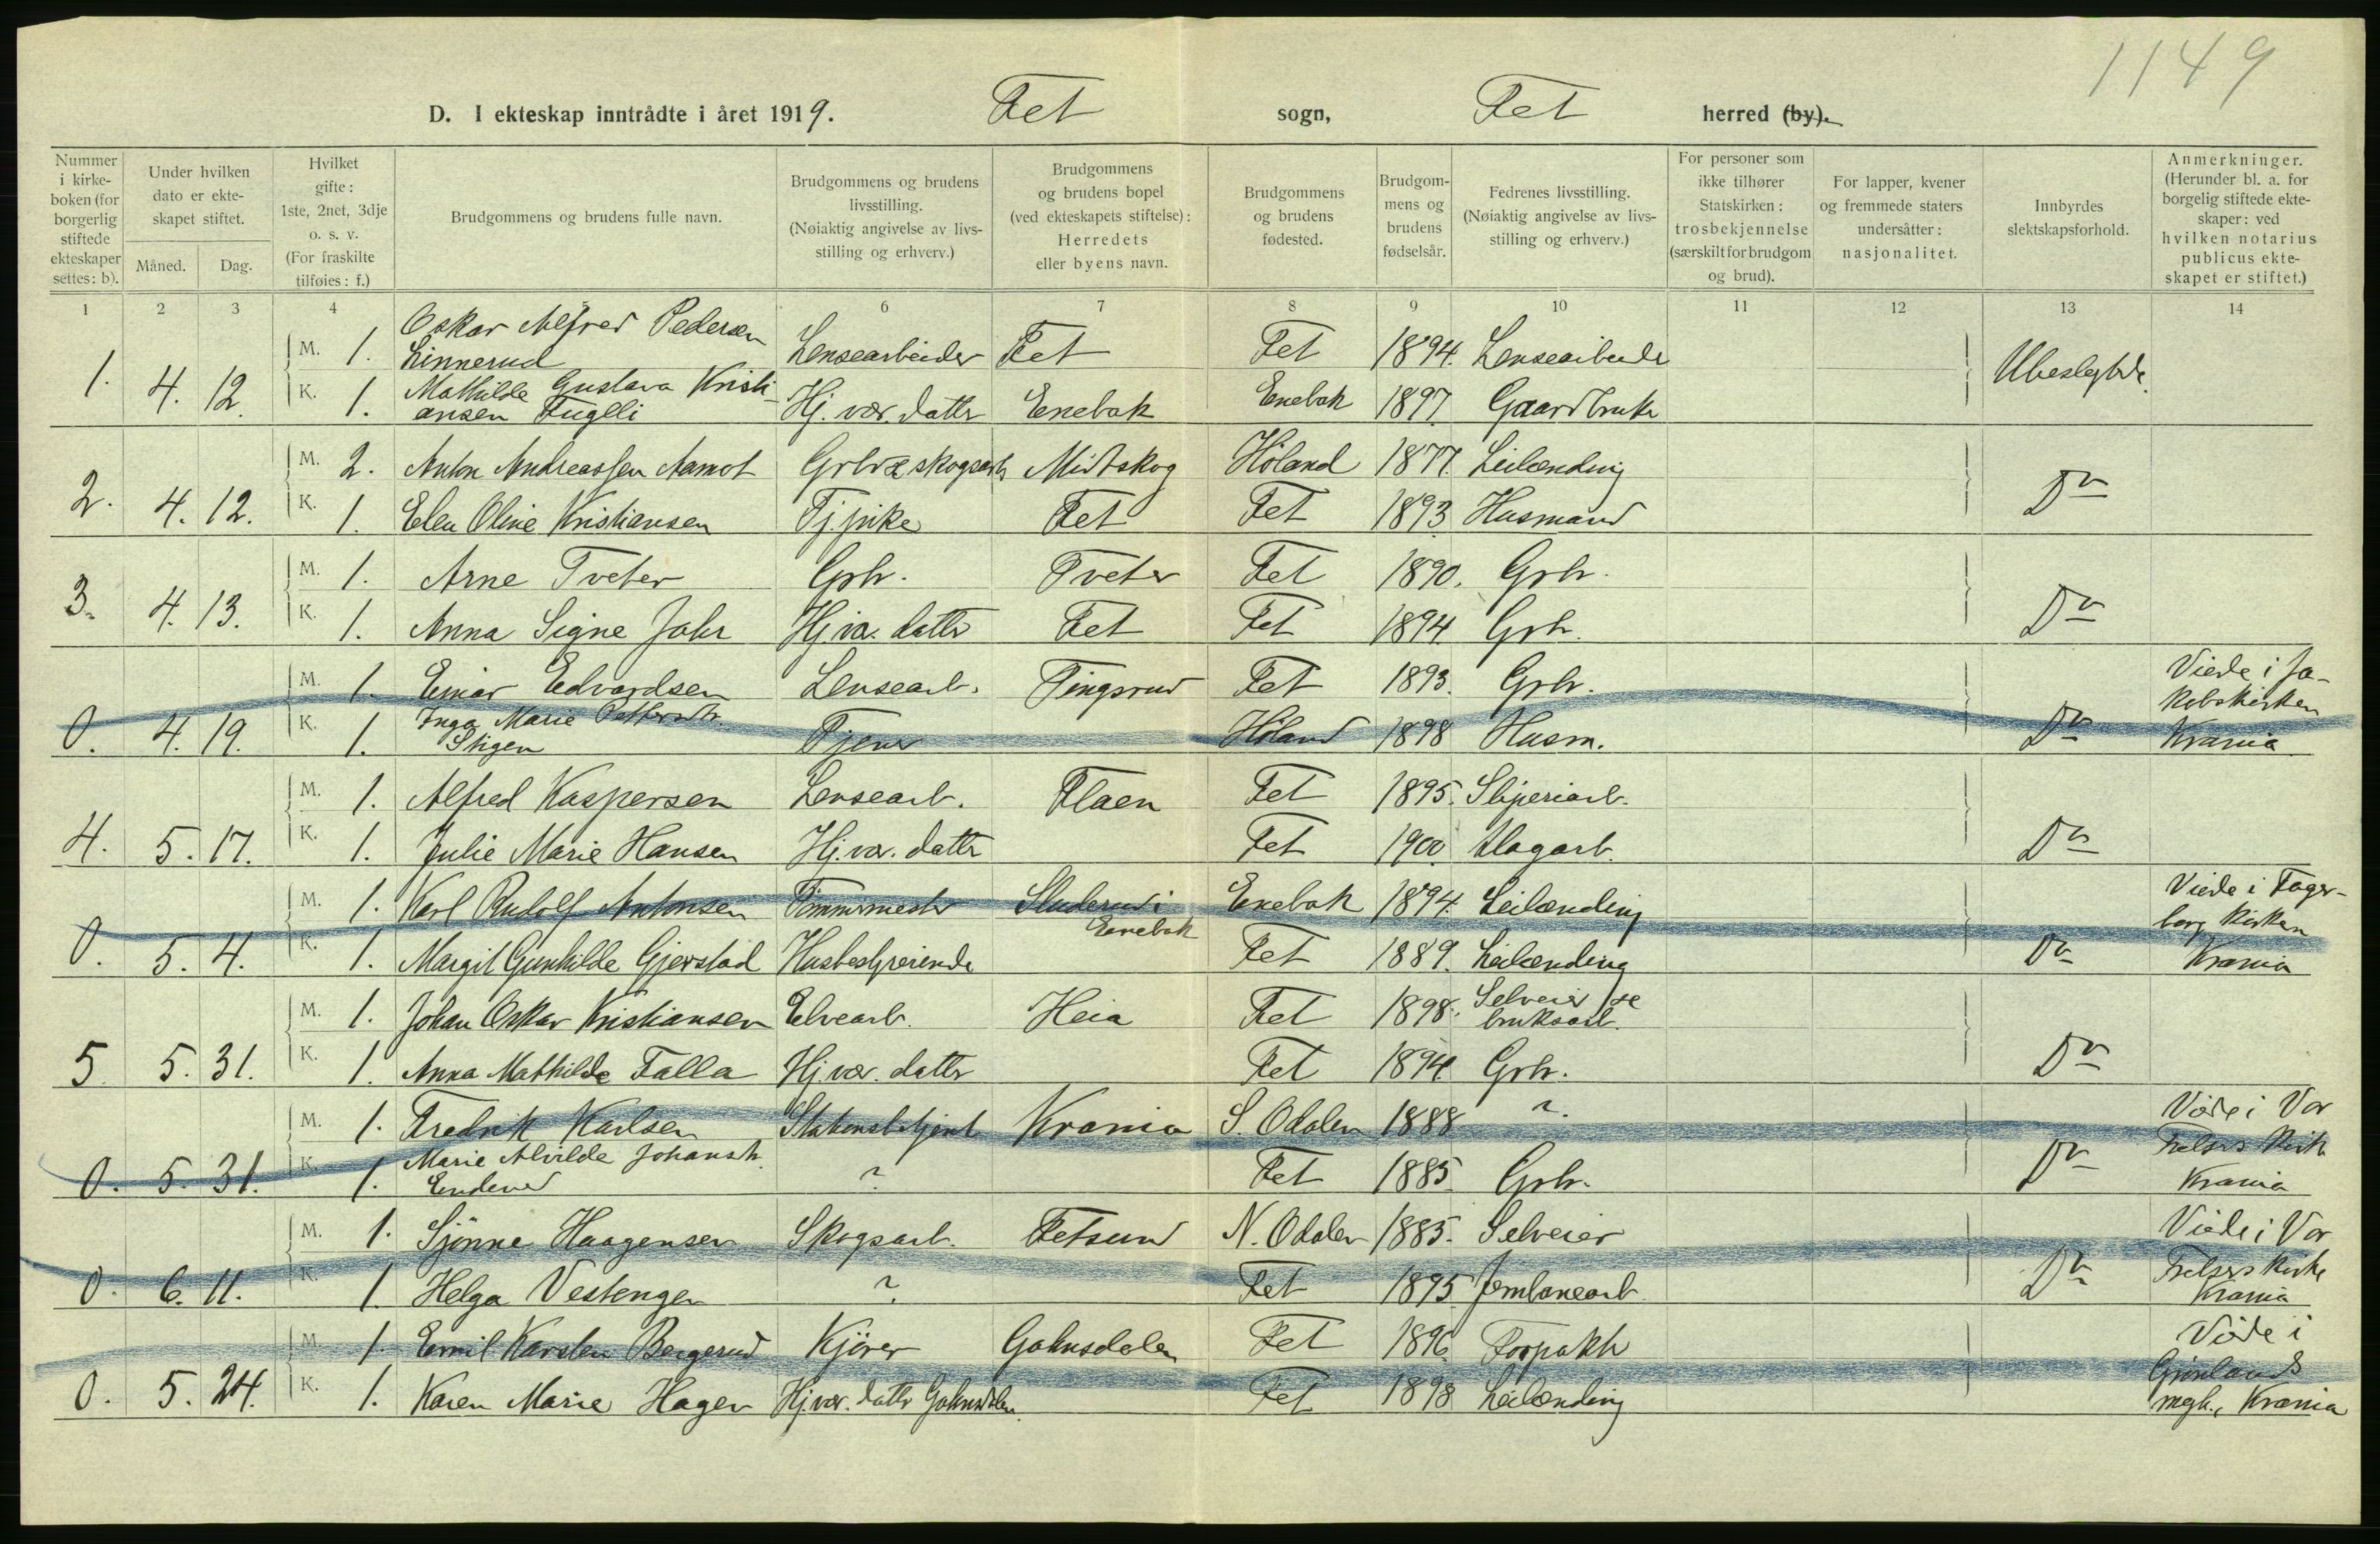 1149
D. I ekteskap inntrådte i året 1919. Fet sogn, Fet herred (by).
Nummer i kirkeboken (for borgerlig stiftede ekteskaper settes: b).
Under hvilken dato er ekteskapet stiftet.
Måned. Dag.
Hvilket gifte: 1ste, 2net, 3dje o. s. v. (For fraskilte tilføies: f.)
Brudgommens og brudens fulle navn.
Brudgommens og brudens livsstilling. (Nøiaktig angivelse av livsstilling og erhverv.)
Brudgommens og brudens bopel (ved ekteskapets stiftelse): Herredets eller byens navn.
Brudgommens og brudens fødested.
Brudgommens og brudens fødselsår.
Fedrenes livsstilling. (Nøiaktig angivelse av livsstilling og erhverv.)
For personer som ikke tilhører Statskirken: trosbekjennelse (særskilt for brudgom og brud).
For lapper, kvener og fremmede staters undersåtter: nasjonalitet.
Innbyrdes slektskapsforhold.
Anmerkninger. (Herunder bl. a. for borgelig stiftede ekteskaper: ved hvilken notarius publicus ekteskapet er stiftet.)
1 2 3 4 5 6 7 8 9 10 11 12 13 14
M. 1. Oskar Alfred Pedersen Linnerud Lensearbeider Fet Fet 1894. Lensearbeide
1. 4. 12. K. 1. Mathilde Gustava Kristiansen Fugelli Hj. vær. datter Enebak Enebak 1897. Gaardbruke Ubeslegtede
M. 2. Anton Andreassen Aamot Grbr & skogsarb Midtskog Høland 1877. Leilænding
2. 4. 12. K. 1. Elen Oline Kristiansen Tj.pike Fet Fet 1893 Husmand Do
M. 1. Arne Tveter Gbr. Tveter Fet 1890. Grbr.
3. 4. 13. K. 1. Anna Signe Jahr Hj.vær. datter Fet Fet 1894. Grbr. Do
M. 1. Einar Edvardsen Lensearb. Tingsrud Fet 1893. Grbr. Viede i Jakobskirken
0. 4. 19. K. 1. Inga Marie Pettersdtr Stigen Tjener Høland 1898 Husm. Do Krania
M. 1. Alfred Kaspersen Lensearb. Flaen Fet 1895. Sliperiarb.
4. 5. 17. K. 1. Julie Marie Hansen Hj.vær. datter Fet 1900 Dagarb. Do
M. 1. Karl Rudolf Antonsen Tømmermester Sluderud i Enebak Enebak 1894. Leilænding Viede i Fagerborg kirken
0. 5. 4. K. 1. Margit Gunhilde Gjerstad Husbestyrerinde Fet 1889. Leilænding Do Krania
M. 1. Johan Oskar Kristiansen Elvearb. Heia Fet 1898. Selveier & bruksarb.
5 5. 31. K. 1. Anna Mathilde Falla Hj.vær. datter Fet 1894 Grbr. Do
M. 1. Fredrik Karlsen Stationsbetjent Krania S. Odalen 1888 ?. Viede i Vor Frelsers Kirke
0. 5. 31. K. 1. Marie Alvilde Johansdtr. ? Fet 1885. Grbr. Do Krania
M. 1. Sjønne Haagensen Skogsarb. Fetsund N. Odalen 1885. Selveier Viede i Vor Frelsers Kirke
0. 6. 11. K. 1. Helga Vestengen ? Fet 1895 Jernbanearb. Do Krania
M. 1. Emil Karsten Bergerud Kjører Gahnsdalen Fet 1896 Forpakter Viede i Grønlands
0. 5. 24. K. 1. Karen Marie Hagen Hj.vær. datter Gahnsdalen. Fet 1898 Leilænding mgh., Krania